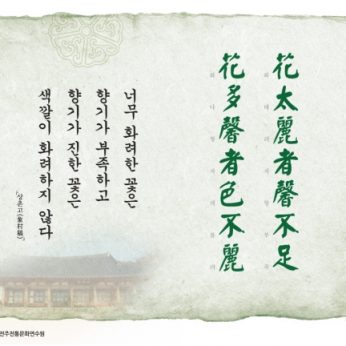 花太麗者馨不足
花多馨者色不麗
너무 화려한 꽃은
향기가 부족하고
향기가 진한 꽃은
색깔이 화려하지 않다
『상촌고(象村稿)』
전주전통문화연수원